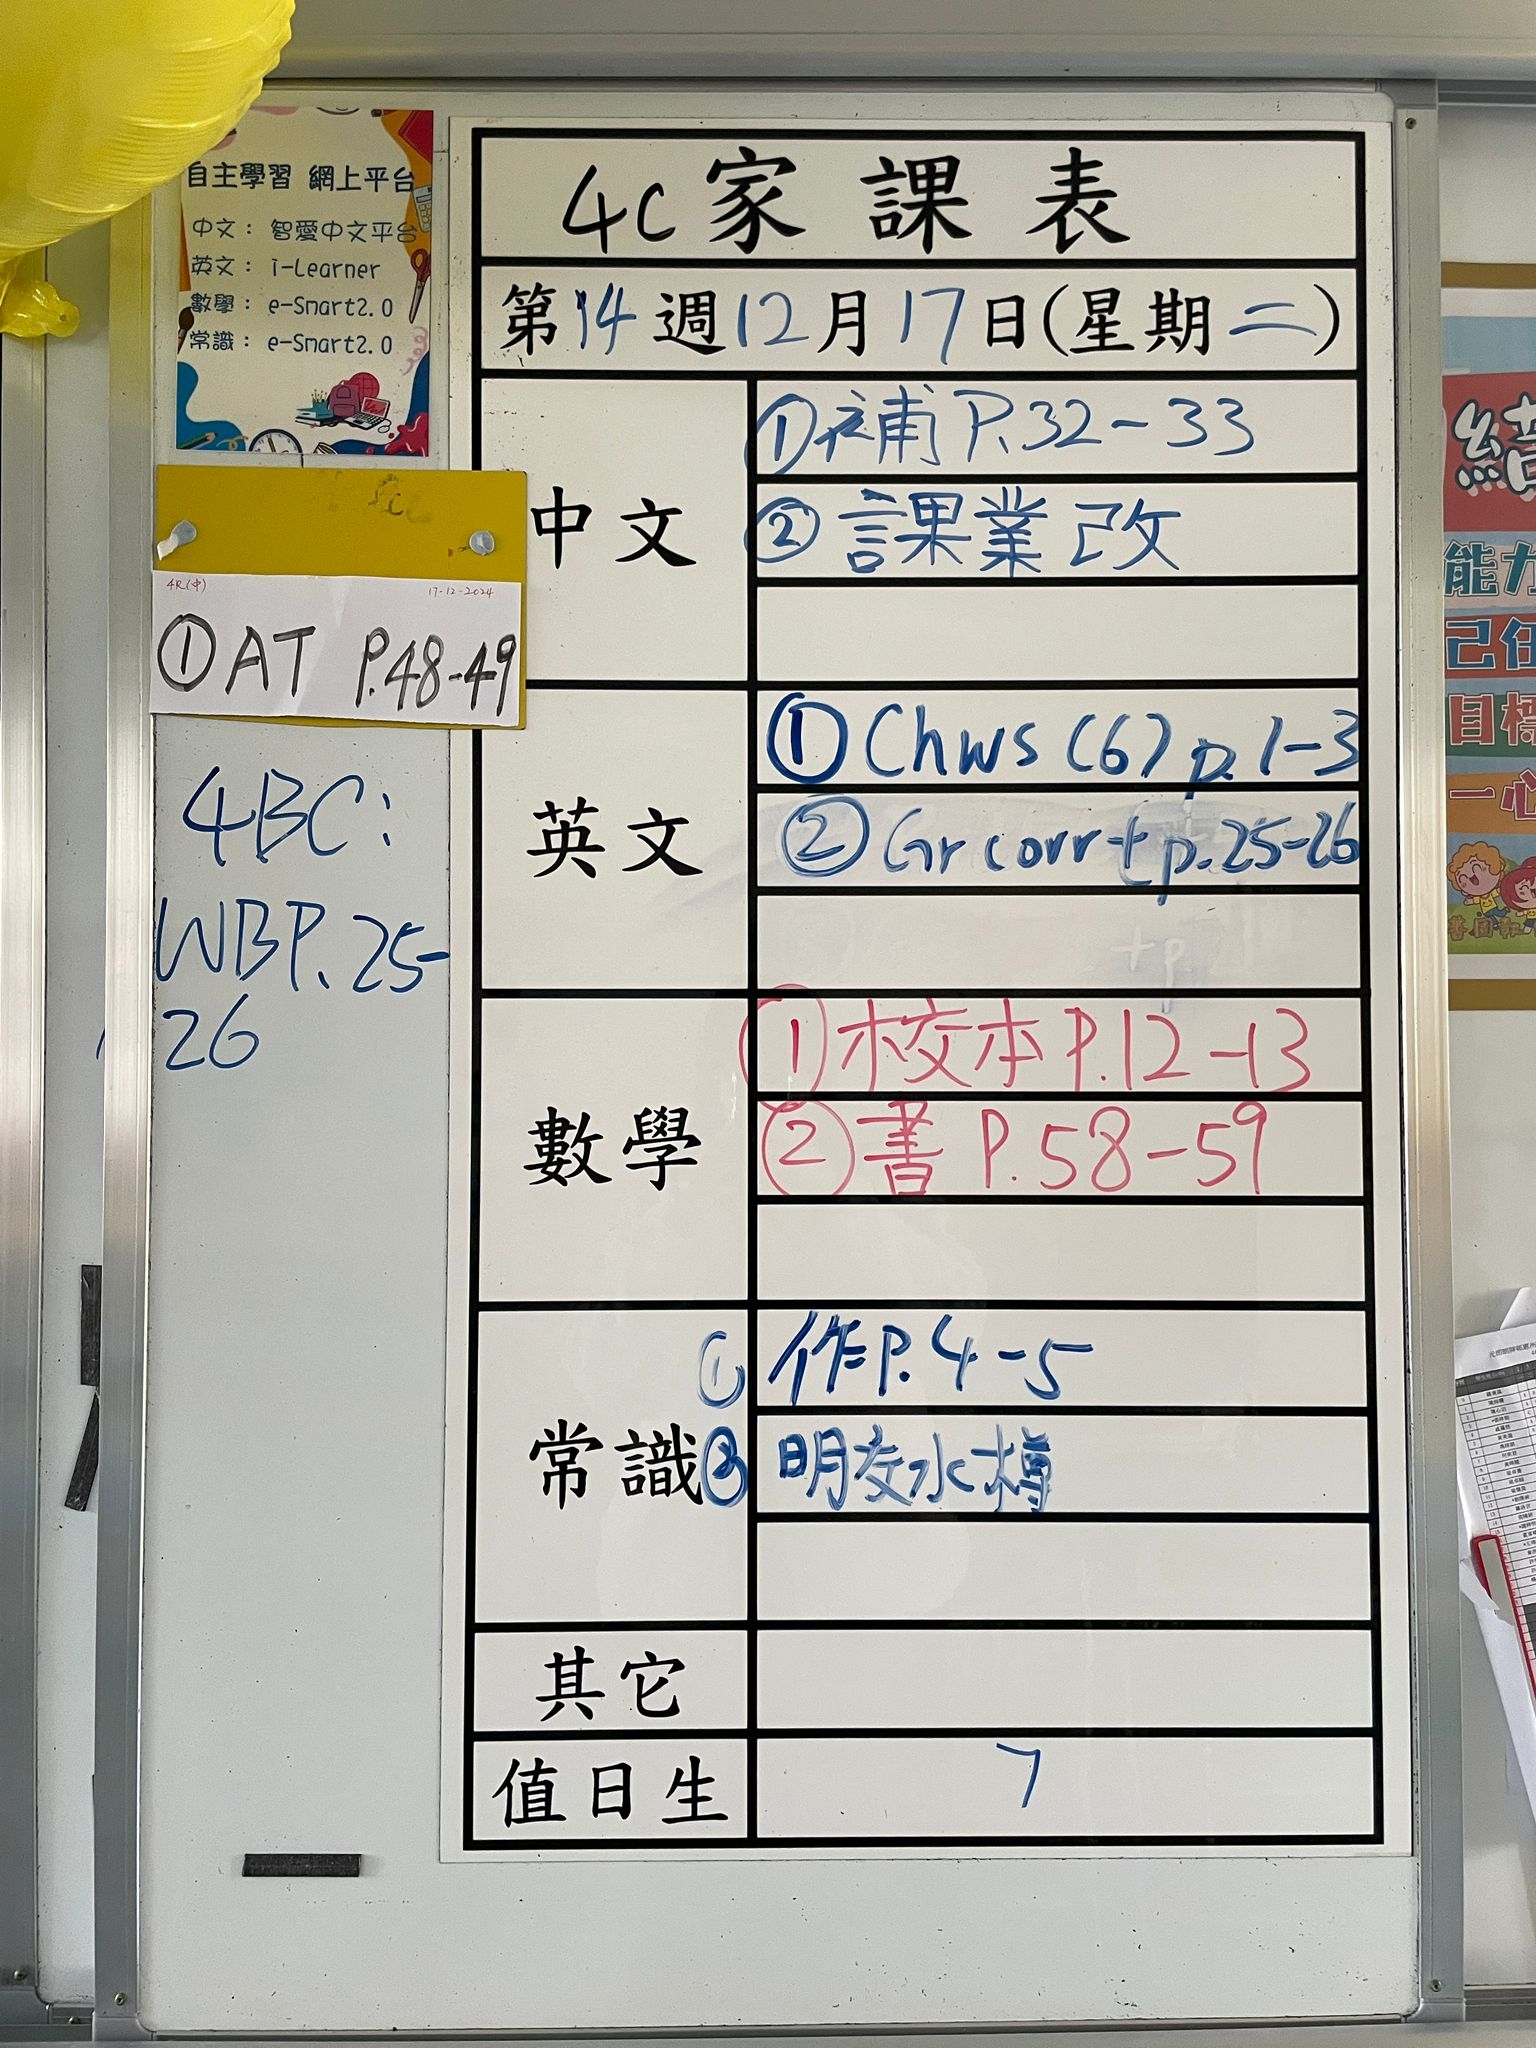 自主學習 網上平台
中文： 智愛中文平台
英文： i-Learner
數學： e-Smart2.0
常識： e-Smart2.0
4R(中) 17-12-2024
①AT P.48-49
4BC:
WBP.25-
26
4C家課表
第14週12月17日(星期二)
中文
①補P.32-33
②課業改
英文
①Chws(6)p.1-3
②Gr corr+p.25-26
+p.
數學
①校本P.12-13
②書P.58-59
常識
①作P.4-5
②明交水樽
其它
值日生
7
能力
己任
目標
一心